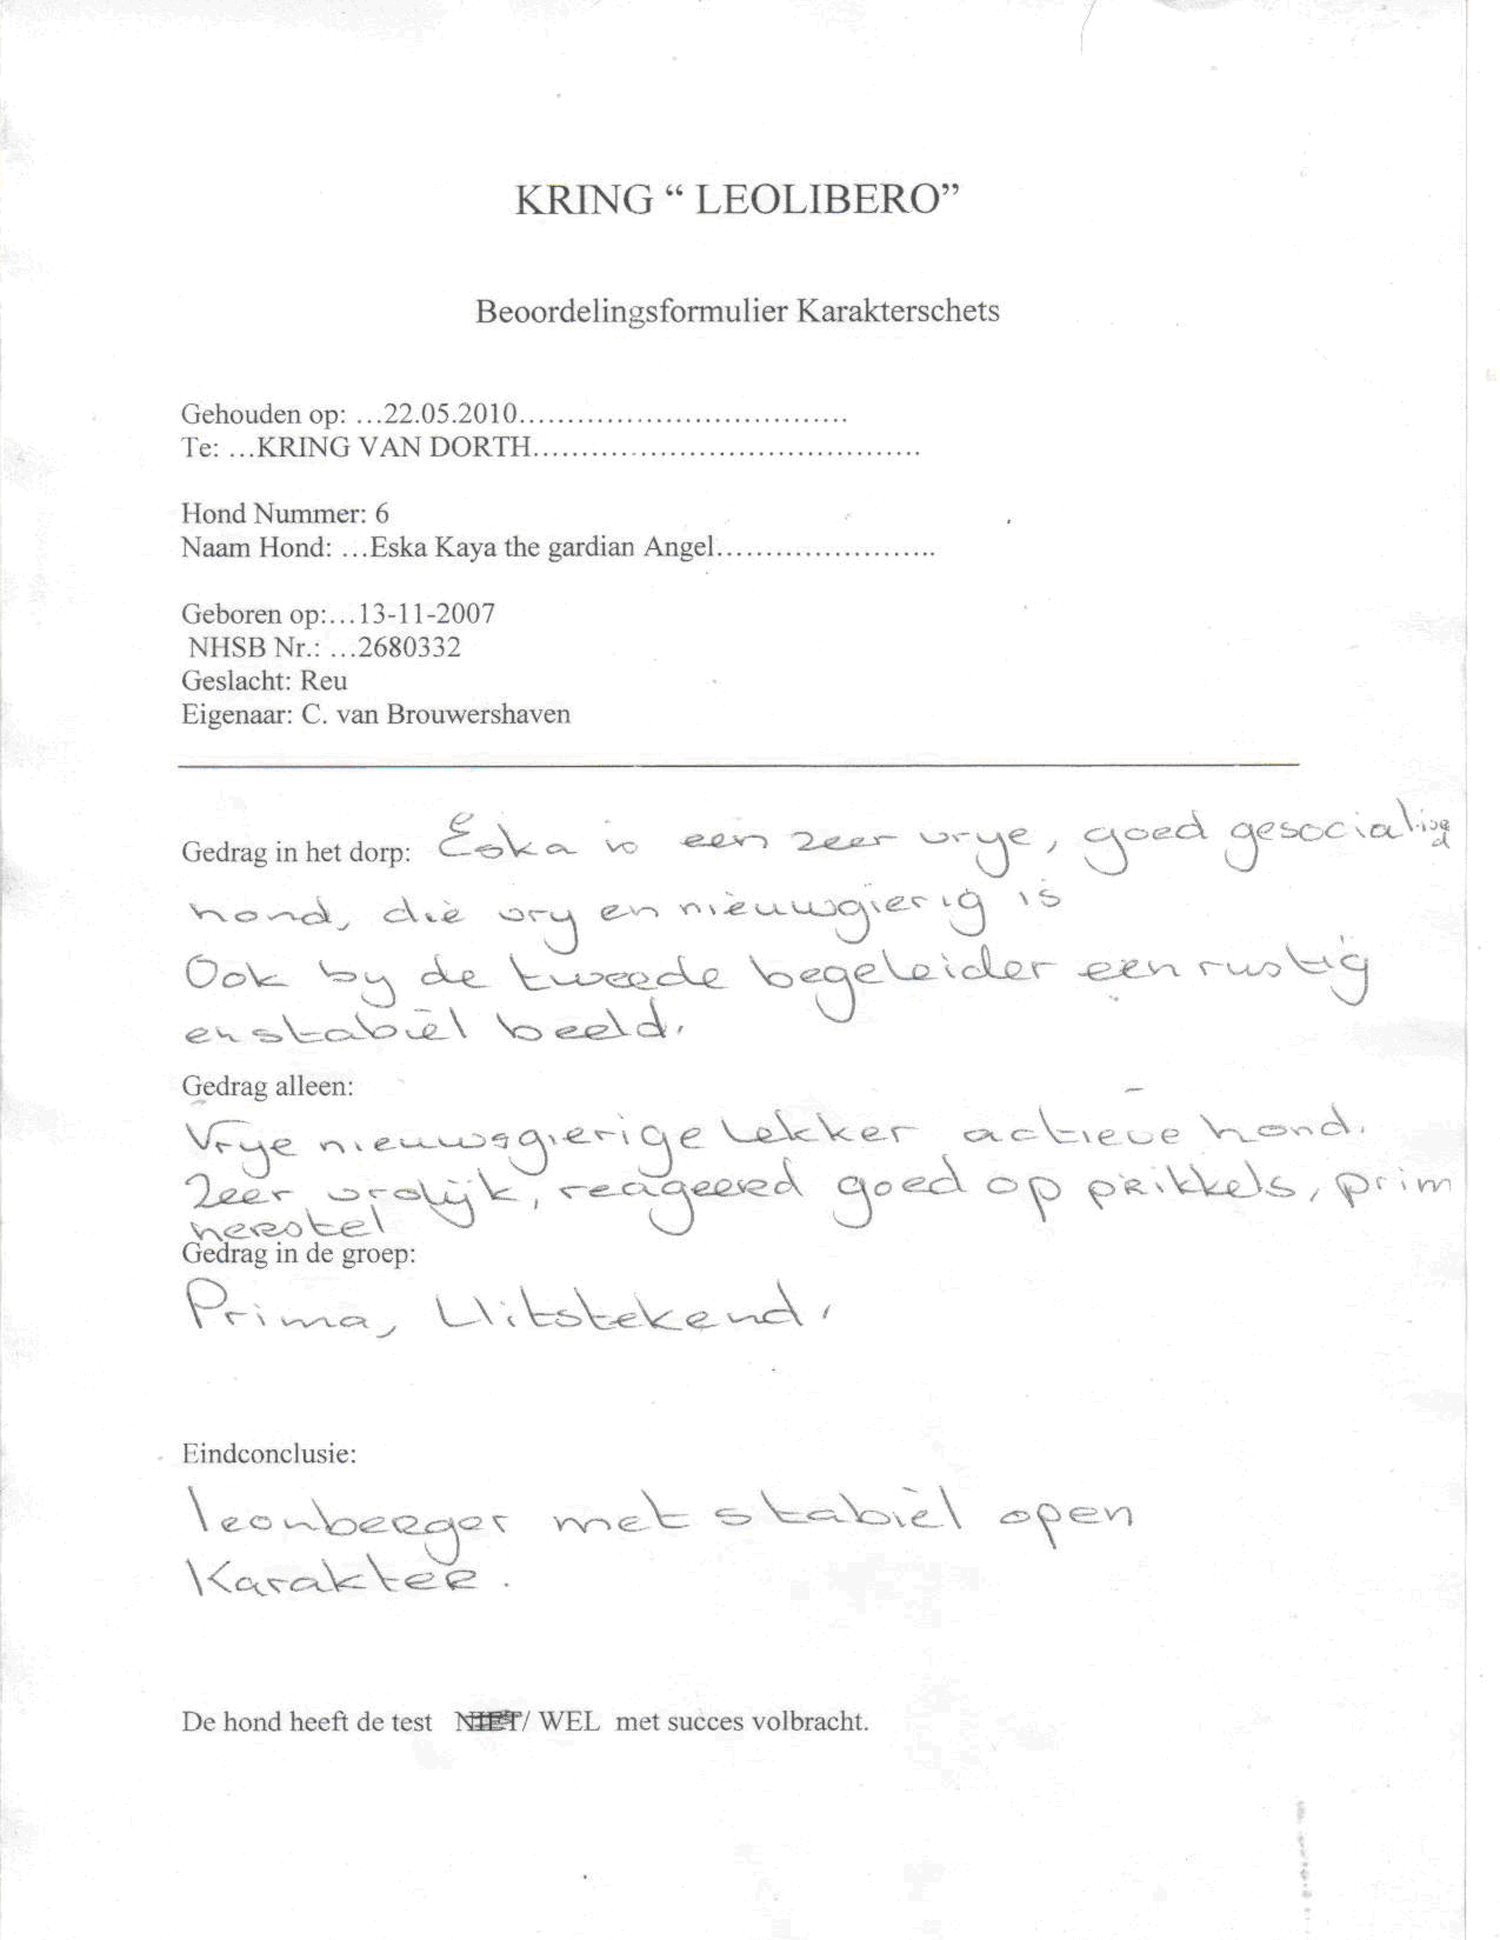 KRING “ LEOLIBERO”
Beoordelingsformulier Karakterschets
Gehouden op: …22.05.2010……………………………
Te: …KRING VAN DORTH…………………………………
Hond Nummer: 6
Naam Hond: …Eska Kaya the gardian Angel………………….
Geboren op:…13-11-2007
NHSB Nr.: …2680332
Geslacht: Reu
Eigenaar: C. van Brouwershaven
Gedrag in het dorp: Eska is een zeer vrye, goed gesocialisg
hond, die vry en nieuwgierig is
Ook by de tweede begeleider een rustig
en stabiel beeld.
Gedrag alleen:
Vrye nieuwsgierige lekker actieve hond.
Zeer vrolijk, reageerd goed op prikkels, prim
herstel
Gedrag in de groep:
Prima, Uitstekend.
Eindconclusie:
leonberger met stabiel open
Karakter.
De hond heeft de test NIET/ WEL met succes volbracht.